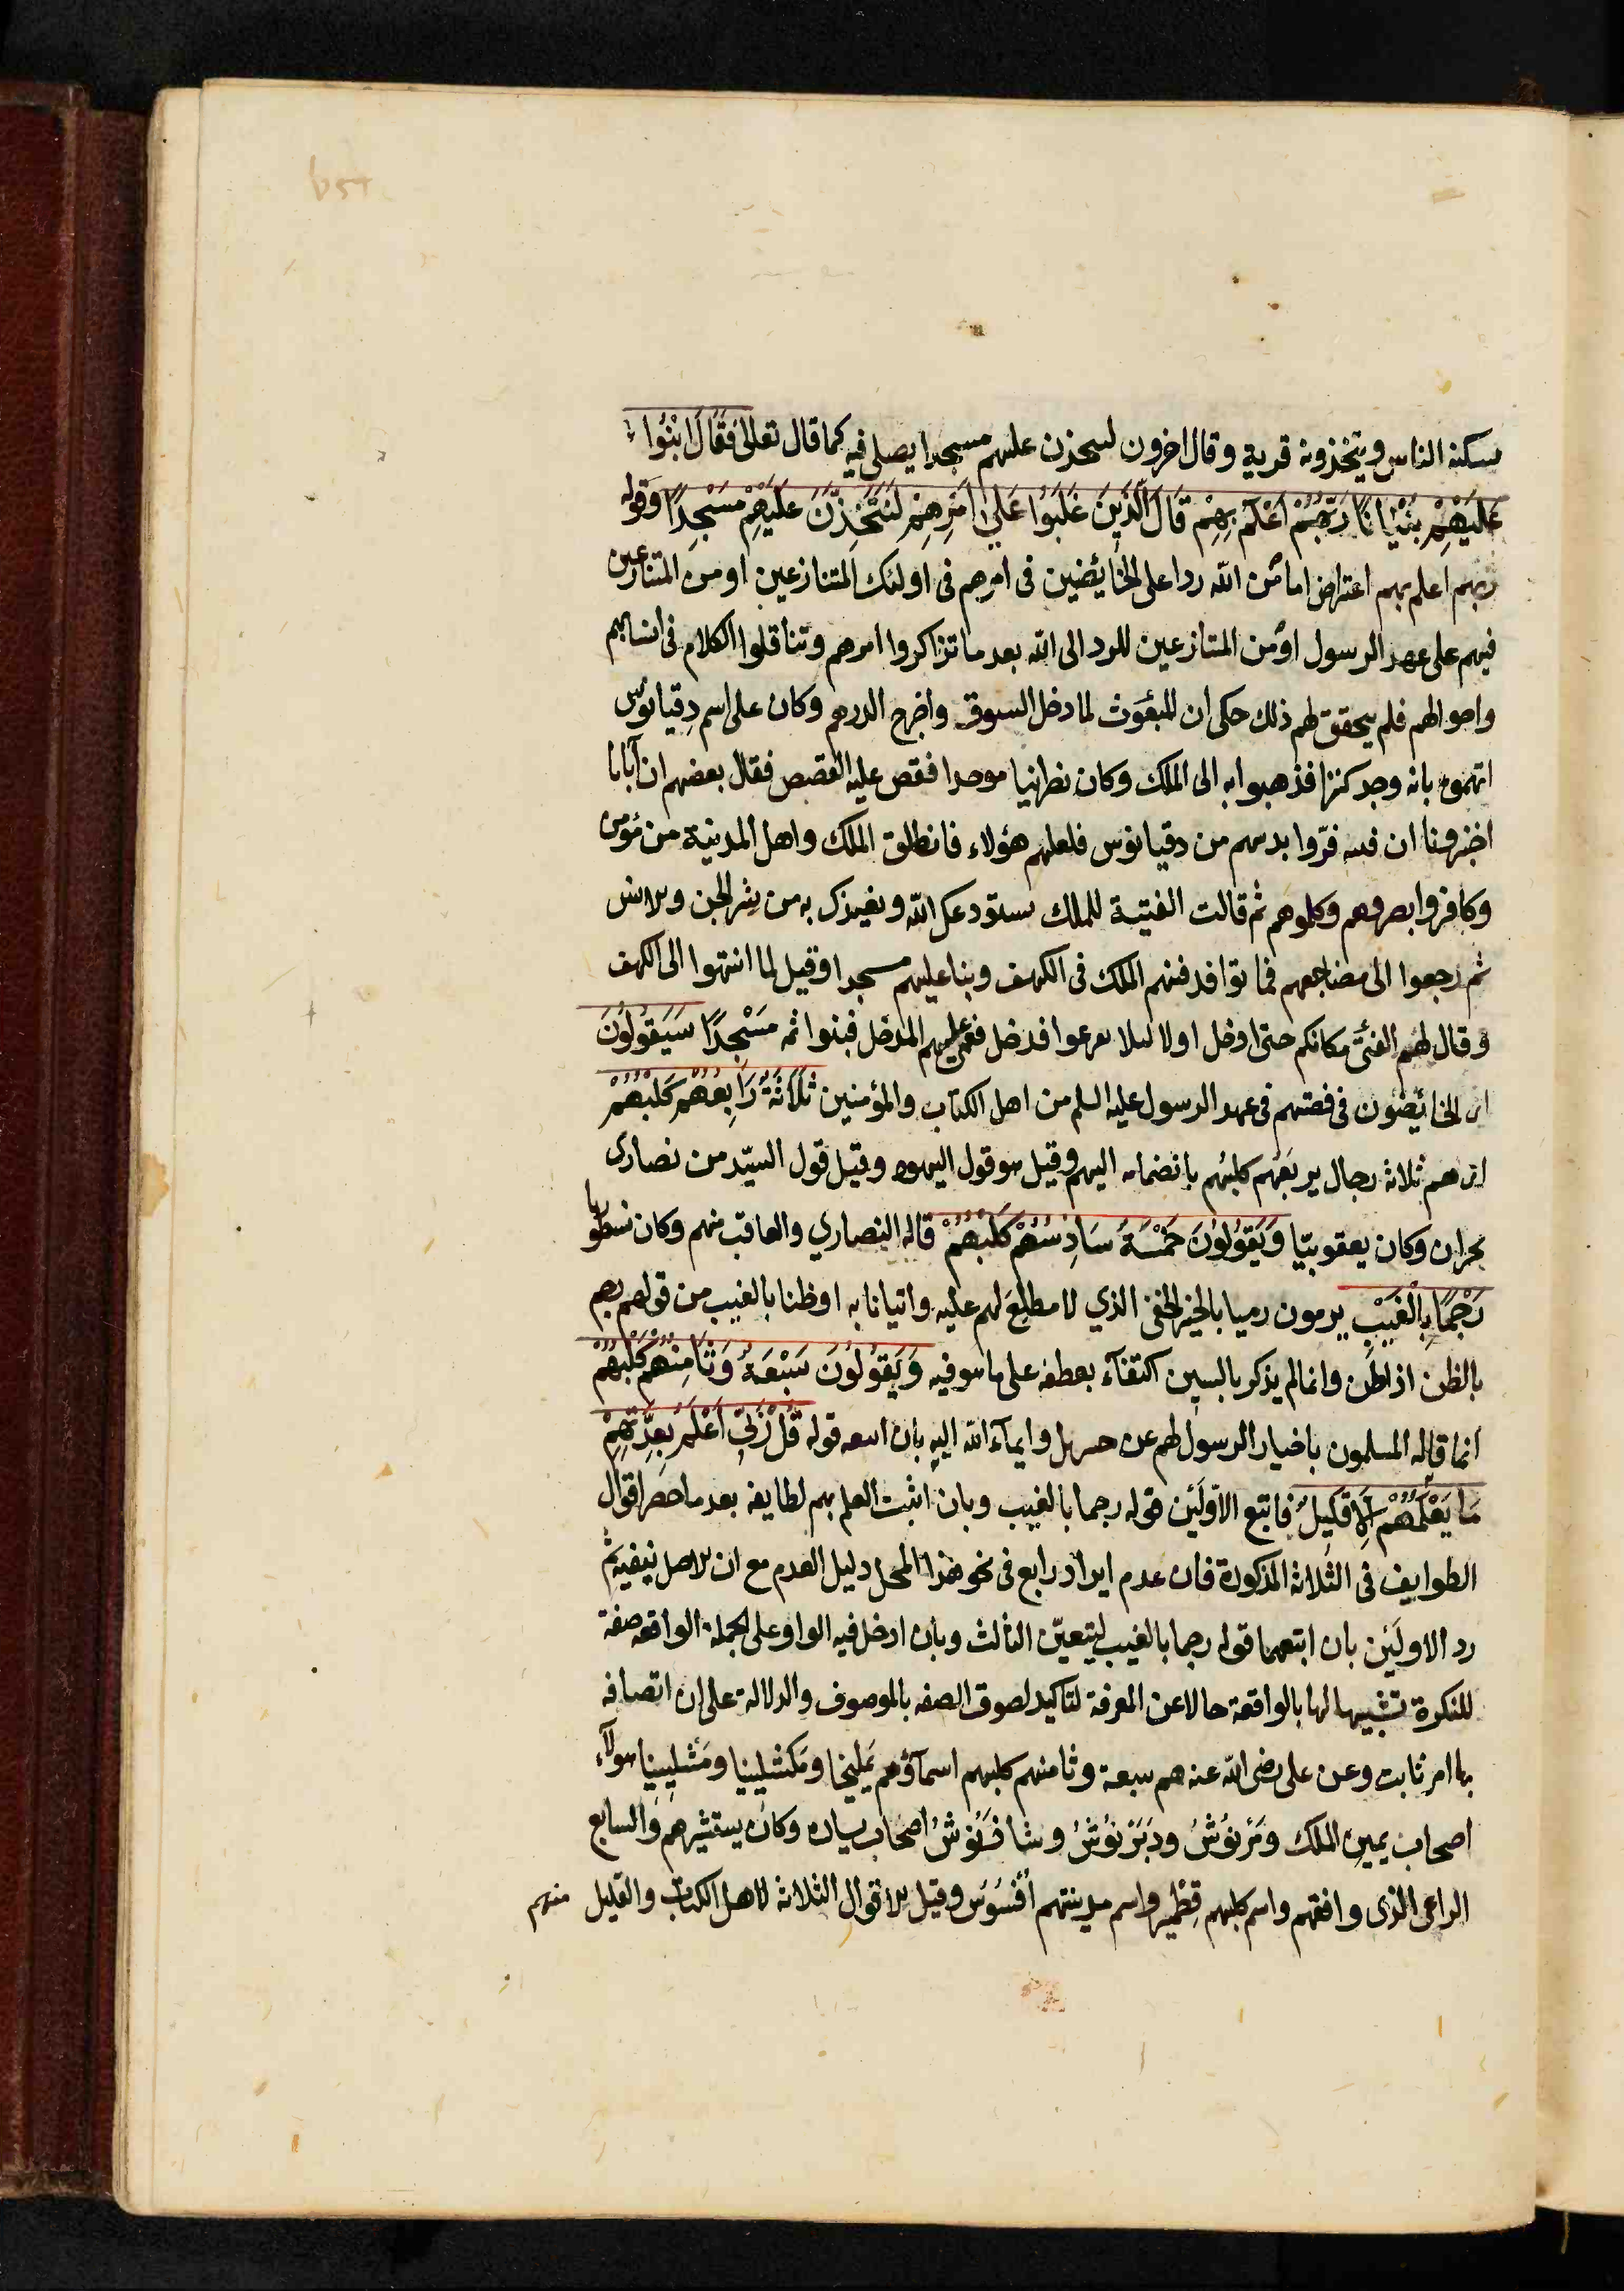 يسكنه الناس ويتخذونه قرية وقال اخرون لنتخذن عليهم مسجدا يصلى فيه كما قال تعالى فَقَالُوا ابْنُوا
عَلَيْهِمْ بُنْيَانًا رَبُّهُمْ أَعْلَمُ بِهِمْ قَالَ الَّذِينَ غَلَبُوا عَلَى أَمْرِهِمْ لَنَتَّخِذَنَّ عَلَيْهِمْ مَسْجِدًا وقوله
ربهم اعلم بهم اعتراض اما من الله ردا على الخائضين فى امرهم فى اولئك المتنازعين او من المتنازعين
فيهم على عهد الرسول او من المتنازعين للرد الى الله بعد ما تذاكروا امرهم وتناقلوا الكلام فى انسابهم
واحوالهم فلم يتحقق لهم ذلك حكى ان المبعوث لما دخل السوق واخرج الدرهم وكان على اسم دقيانوس
اتهموه بانه وجد كنزا فذهبوا به الى الملك وكان نصرانيا موحدا فقص عليه القصص فقال بعضهم ان آبانا
اخبرونا ان فتية فرّوا بدينهم من دقيانوس فلعلهم هؤلاء فانطلق الملك واهل المدينة من مؤمن
وكافر وابصروهم وكلموهم ثم قالت الفتية للملك نستودعك الله ونعيذك به من شر الجن والانس
ثم رجعوا الى مضاجعهم فماتوا فدفنهم الملك فى الكهف وبنا عليهم مسجدا وقيل لما انتهوا الى الكهف
وقال لهم الفتى مكانكم حتى ادخل اولا ليلا يفزعوا فدخل فعمى عليهم المدخل فبنوا ثم مَسْجِدًا سَيَقُولُونَ
اى الخائضون فى قصتهم فى عهد الرسول عليه السلم من اهل الكتاب والمؤمنين ثَلَاثَةٌ رَابِعُهُمْ كَلْبُهُمْ
اى هم ثلاثة رجال يربعهم كلبهم بانضمامه اليهم وقيل هو قول اليهود وقيل قول السيّد من نصارى
نجران وكان يعقوبيّا وَيَقُولُونَ خَمْسَةٌ سَادِسُهُمْ كَلْبُهُمْ قاله النصاري والعاقب منهم وكان نسطوريا
رَجْمًا بِالْغَيْبِ يرمون رميا بالخبر الخفى الذي لا مطلع لهم عليه واتيانا به او ظنا بالغيب من قولهم رجم
بالظن اذا ظن وانما لم يذكر بالسين اكتفآء بعطفه على ما هو فيه وَيَقُولُونَ سَبْعَةٌ وَثَامِنُهُمْ كَلْبُهُمْ
انما قاله المسلمون باخبار الرسول لهم عن جبريل وايمآء الله اليه بان اتبعه قوله قُلْ رَبِّي أَعْلَمُ بِعِدَّتِهِمْ
مَا يَعْلَمُهُمْ إِلَّا قَلِيلٌ فاتبع الاوّلَين قوله رجما بالغيب وبان اثبت العلم بهم لطايفة بعد ما حصر اقوال
الطوايف فى الثلاثة المذكورة فان عدم ايراد رابع فى نحو هذا المحل دليل العدم مع ان الاصل ينفيه ثم
رد الاولَين بان اتبعهما قوله رجما بالغيب ليتعيّن الثالث وبان ادخل فيه الواو على الجملة الواقعة صفة
للنكرة تشبيها لها بالواقعة حالا عن المعرفة لتاكيد لصوق الصفه بالموصوف والدلالة على ان اتصافه
بها امر ثابت وعن على رضى الله عنه هم سبعة وثامنهم كلبهم اسمآؤهم يَمليخا ومَكشليتيا ومَشليتيا هولآء
اصحاب يمين الملك ومَرْنُوشْ ودَبَرْنُوشْ وشاذَنُوشْ اصحاب يساره وكان يستشيرهم والسابع
الراعى الذى وافقهم واسم كلبهم قِطمير واسم مدينتهم أُفْسُوس وقيل الاقوال الثلاثة لاهل الكتاب والقليل منهم